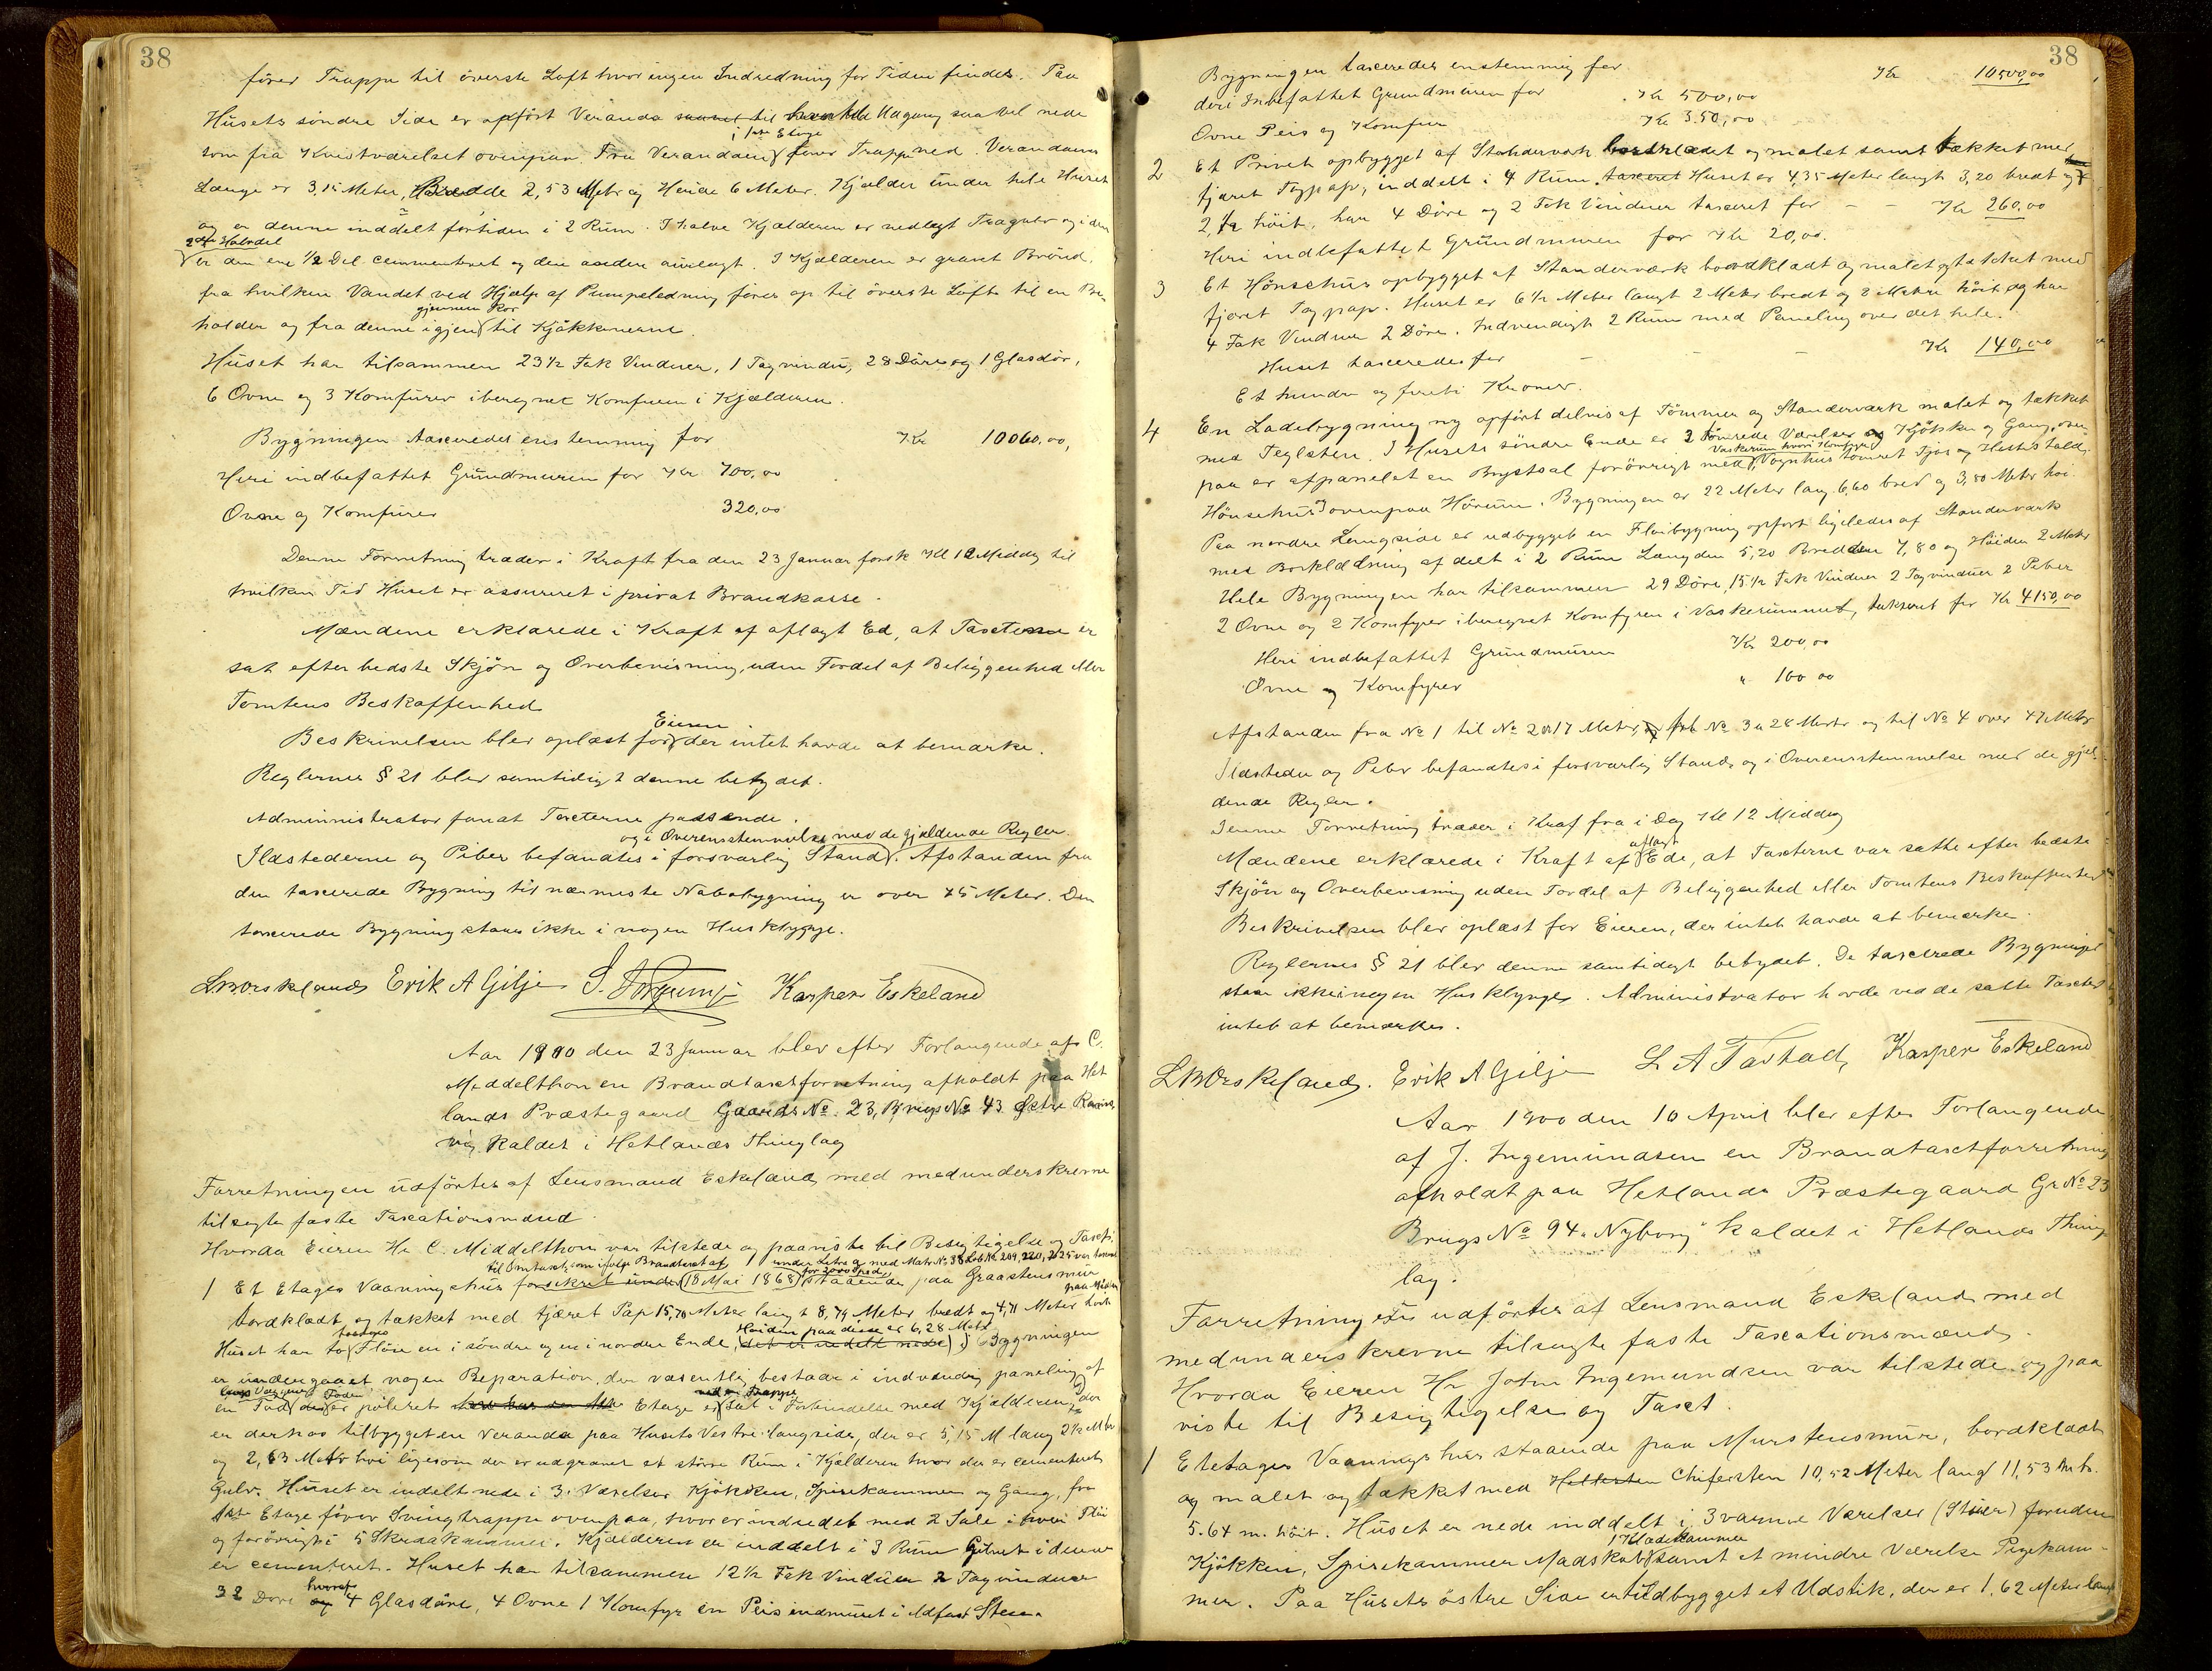 38
fører Trappe til øverste Loft hvor ingen Indredning for Tiden findes. Paa
Husets søndre Side er opført Veranda til Udgang saavel nede
i 1ste Etage
som fra Kvistværelset ovenpaa. Fra Verandaen fører Trappe ned. Verandaens
Længe er 3,15 Meter, Bredde 2,53 Meter og Høide 6 Meter. Kjælder under hele Huset
og er denne inddelt for tiden i 2 Rum. I halve Kjælderen er nedlagt Tragulv og i den
2den Halvdel
er den ene 1/2 Del cementeret og den anden aulagt. I Kjælderen er gravet Brønd,
fra hvilken Vandet ved Hjælp af Pumpeledning føres op til øverste Loft til en Be-
gjennem Rør
holder og fra denne igjen til Kjøkkenerne.
Huset har tilsammen 23 1/2 Fak Vinduer, 1 Tagvindu, 28 Døre og 1 Glasdør,
6 Ovne og 3 Komfurer iberegnet Komfuren i Kjælderen.
Bygningen taxeredes enstemmig for Kr 10060,00,
Heri indbefattet Grundmuren for Kr 700,00
Ovne og Komfurer 320,00
Denne Forretning træder i Kraft fra den 23 Januar førstk Kl 12 Middag til
hvilken Tid Huset er assureret i privat Brandkasse.
Mændene erklærede i Kraft af aflagt Ed, at Taxterne er
sat efter bedste Skjøn og Overbevisning, uden Fordel af Beliggenhed eller
Tomtens Beskaffenhed
Eieren
Beskrivelsen blev oplæst for der intet havde at bemærke.
Reglernes § 21 blev samtidigt denne betydet.
Administrator fandt Taxterne passende.
og i Overensstemmelse med de gjældende Regler
Ildstederne og Piber befandtes i forsvarlig Stand. Afstanden fra
den taxerede Bygning til nærmeste Nabobygning er over 75 Meter. Den
taxerede Bygning staar ikke i nogen Husklynge.
Erik A Gilje Kasper Eskeland
Aar 1900 den 23 Januar blev efter Forlangende af C.
Middelthon en Brandtaxtforretning afholdt paa Het
lands Præstegaard Gaards No. 23, Brugs No 43 Østre Ravns
vig kaldet i Hetlands Thinglag
Forretningen udførtes af Lensmand Eskeland med medunderskrevne
tilsagte faste Taxationsmænd.
Hvorda Eieren Hr C. Middelthon var tilstede og paaviste til Besigtigelse og Taxt:
til Omtaxt, som ifølge Brandtaxt af under Litra a med Matr No 38 Løb No 209, 220, 225 var taxeret
for 2000 Spd
1 Et Etages Vaaningshus forsikret under 18 Mai 1868 staaende paa Graastensmur
paa Midten
bordklædt og tækket med tjæret Pap 15,70 Meter langt 8,79 Meter bredt og 4,71 Meter høit
Høiden paa disse er 6,28 Meter
Huset har to Fløie en i søndre og en i nordre Ende, Bygningen
er undergaaet nogen Reparation, der væsentlig bestaar i indvendig paneling af
en er poleret Etage er sat i Forbindelse med Kjælderen, der
er derhos tilbygget en Veranda paa Husets Vestre Langside, der er 5,15 M lang 2 1/2 Mtr
og 2,63 Meter høi ligesom der er udgravet et større Rum i Kjælderen hvor der er cementeret
Gulv. Huset er indelt nede i 3 Værelser Kjøkken, Spisekammer og Gang, fra
1ste Etage fører Svingtrappe ovenpaa, hvor er indredet med 2 Sale i hver Fløi
og forøvrigt 5 Skraakammer. Kjælderen er inddelt i 3 Rum Gulvet i denne
er cementeret. Huset har tilsammen 12 1/2 Fak Vinduer 2 Tagvinduer
hvoraf
32 Døre 4 Glasdøre, 4 Ovne 1 Komfyr en Peis indmuret i Ildfast Sten.
38
Bygningen taxeredes enstemmig for Kr 10500,00
deri Inbefattet Grundmuren for Kr 500,00
Ovne Peis og Komfur Kr 350,00
2 Et Privet opbygget af Standerværk bordklædet og malet samt tækket med
tjæret Tagpap, inddelt i 4 Rum. Huset er 4,35 Meter langt 3,20 bredt og
2,12 høit, har 4 Døre og 2 Fak Vinduer taxeret for - - Kr 260,00
Heri indbefattet Grundmuren for Kr 20,00.
3 Et Hønsehus opbygget af Standerværk bordklædt og malet og tækket med
tjæret Tagpap. Huset er 6 1/2 Meter langt 2 Meter bredt og 2 Meter høit og har
4 Fak Vinduer 2 Døre. Indvendigt 2 Rum med Paneling over det hele.
Huset taxeredes for - - - Kr 140,00
Et hundre og fireti Kroner.
4 En Ladebygning ny opført delvis af Tømmer og Standerværk malet og tækket
med Teglsten. I Husets søndre Ende er 2 tømrede Værelser og Kjøkken og Gang, oven
Vaskerum hvori Komfyr
paa er afpanelet en Brystsal forøvrigt med Vognhus tømret Fjøs og Hestestald,
Hønsehus ovenpaa Hørum. Bygningen er 22 Meter lang 6,60 bred og 3,80 Meter høi.
Paa nordre Langside er udbygget en Fløibygning opført ligeledes af Standerværk
med Bordklædning afdelt i 2 Rum Længden 5,20 Bredden 7,80 og Høiden 2 Meter
Hele Bygningen har tilsammen 29 Døre, 15 1/2 Fak Vinduer 2 Tagvinduer 2 Peber
2 Ovne og 2 Komfyrer iberegnet Komfyren i Vaskerummet, takseret for Kr 4150,00
Heri indbefattet Grundmuren Kr 200,00
Ovne og Komfyrer " 160 00
Afstanden fra No 1 til No 2 er 17 Meter, til No 3 er 28 Meter og til No 4 over 47 Meter
Ildsteder og Peber befandtes i forsvarlig Stand og i Overensstemmelse med de gjæl-
dende Regler.
Denne Forretning træder i Kraf fra i Dag Kl 12 Middag
aflagt
Mændene erklærede i Kraft af Ede, at Taxterne var satte efter bedste
Skjøn og Overbevisning uden Fordel af Beliggenhed eller Tomtens Beskaffenhed
Beskrivelsen blev oplæst for Eieren, der intet havde at bemærke.
Reglernes § 21 blev denne samtidigt betydet. De taxerede Bygninger
staar ikke i nogen Husklynge. Administrator havde ved de satte Taxter
intet at bemærke.
Erik A Gilje L A Tastad, Kasper Eskeland
Aar 1900 den 10 April blev efter Forlangende
af J. Ingemundsen en Brandtaxtforretning
afholdt paa Hetlands Præstegaard Gr No 23
Brugs No 94 "Nyborg" kaldet i Hetlands Thing
lag.
Forretningen udførtes af Lensmand Eskeland med
medunderskrevne tilsagte faste Taxationsmænd.
Hvorda Eieren Hr John Ingemundsen var tilstede og paa
viste til Besigtigelse og Taxt.
1 Etetages Vaaningshus staaende paa Murstensmur, bordklædt
og malet og tækket med Hellesten Chifersten 10,52 Meter lang 11,53 m br.
5.64 m. høit. Huset er nede inddelt i 3 varme Værelser (Stuer) foruden
1 Klædekammer
Kjøkken, Spisekammer Madskab samt et mindre Værelse Pigekam-
mer. Paa Husets østre Side er udbygget et Udstik, der er 1,62 Meter langt